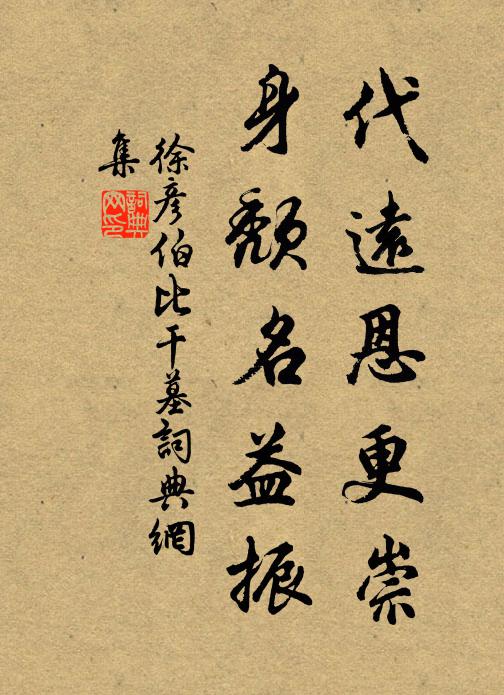 代遠恩更崇
身頹名益振
徐彥伯比干墓詞典網
集
詞典網印